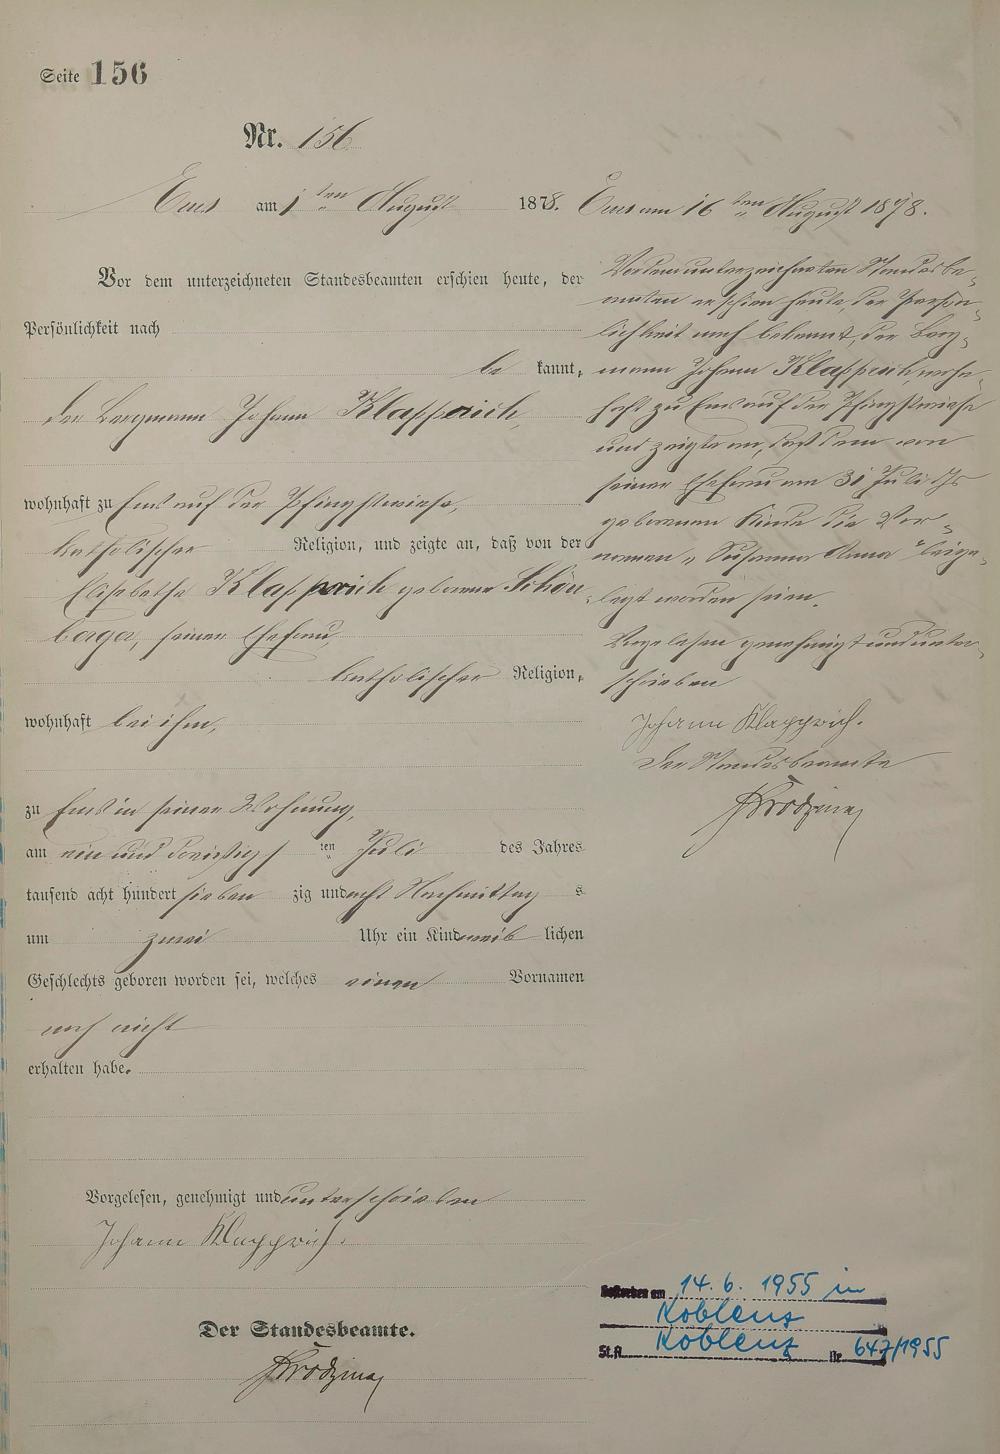 Seite 156
Nr. 156
Ems am 1 ten August 1878.
Vor dem unterzeichneten Standesbeamten erschien heute, der
Persönlichkeit nach
be kannt,
der Bergmann Johann Klapprich,
wohnhaft zu Ems auf der Pfingstwiese,
katholischer Religion, und zeigte an, daß von der
Elisabetha Klapprich geborene Schön-
berger, seiner Ehefrau,
katholischer Religion,
wohnhaft bei ihm,
zu Ems in seiner Wohnung,
am ein und dreißigs ten Juli des Jahres
tausend acht hundert sieben zig und acht Nachmittag s
um zwei Uhr ein Kind weib lichen
Geschlechts geboren worden sei, welches einen Vornamen
noch nicht
erhalten habe.
Vorgelesen, genehmigt und unterschrieben
Johann Klapprich.
Der Standesbeamte.
Ems am 16 ten August 1878.
Vor dem unterzeichneten Standesbe-
amten erschien heute, der Persön-
lichkeit nach bekannt, der Berg-
mann Johann Klapprich, wohn-
haft zu Ems auf der Pfingstwiese
und zeigte an, daß dem von
seiner Ehefrau am 31 Juli ds Js
geborenen Kinde die Vor-
namen „Susanna Anna" beige-
legt worden seien.
Vorgelesen genehmigt und unter-
schrieben
Johann Klapprich.
Der Standesbeamte
Gestorben am 14. 6. 1955 in
Koblenz
St.A. Koblenz Nr. 647/1955